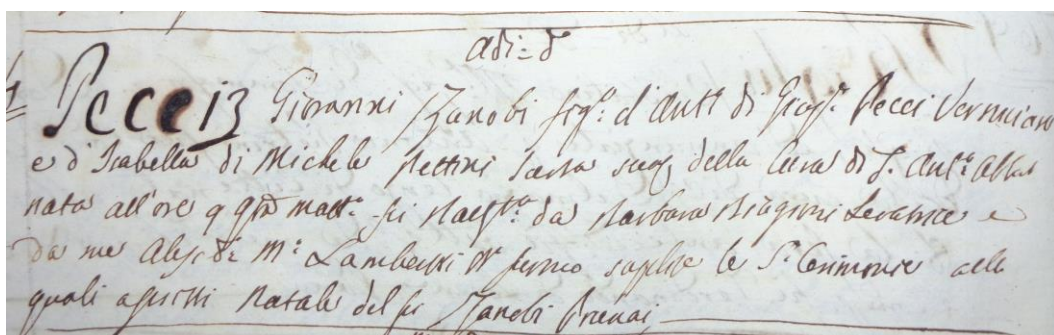 adì = d°
Pecci Giovanni Zanobi figº: d'Antº di Giusº: Pecci Verniciaro
e d'Isabella di Michele Pettini Sarta della Cura di S. Antº: Abbate
nata all'ore 9 matta: fu da Barbara Biagioni Levatrice e
da me M: Lambertti furno suplite le S: Cerimonie alle
quali assistì Natale del fu Zanobi